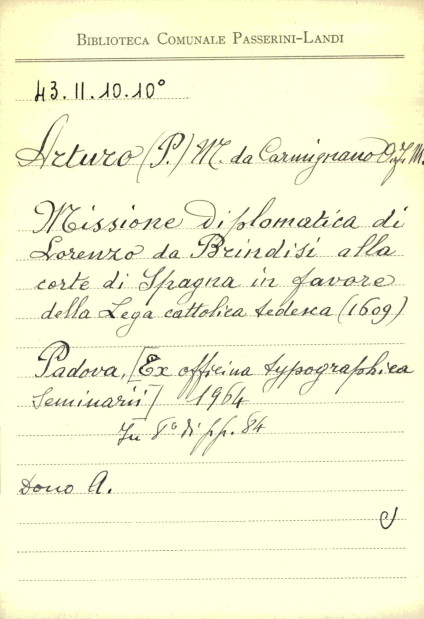 BIBLIOTECA COMUNALE PASSERINI-LANDI
43.II.10.10°
Arturo (P.) M. da Carmignano O.F.M.
Missione diplomatica di
Lorenzo da Brindisi alla
corte di Spagna in favore
della Lega cattolica tedesca (1609)
Padova, [Ex officina typographica
Seminarii] 1964
In 8° di pp. 84
Dono A.